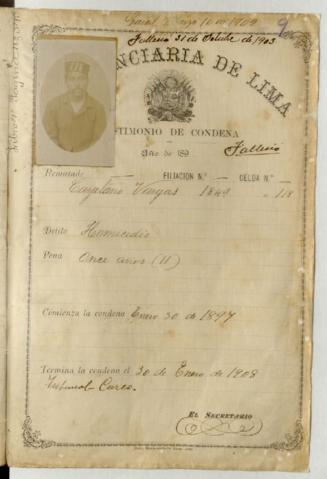 Falleció 31 de Octubre de 1903
9
NCIARIA DE LIMA
STIMONIO DE CONDENA
Año de 189
Falleció
Rematado FILIACION N.º CELDA N.º
Cayetano Vargas 118
Delito Homicidio
Pena Once años (11)
Comienza la condena Enero 30 de 1897
Termina la condena el 30 de Enero de 1908
Tribunal Cuzco.
EL SECRETARIO